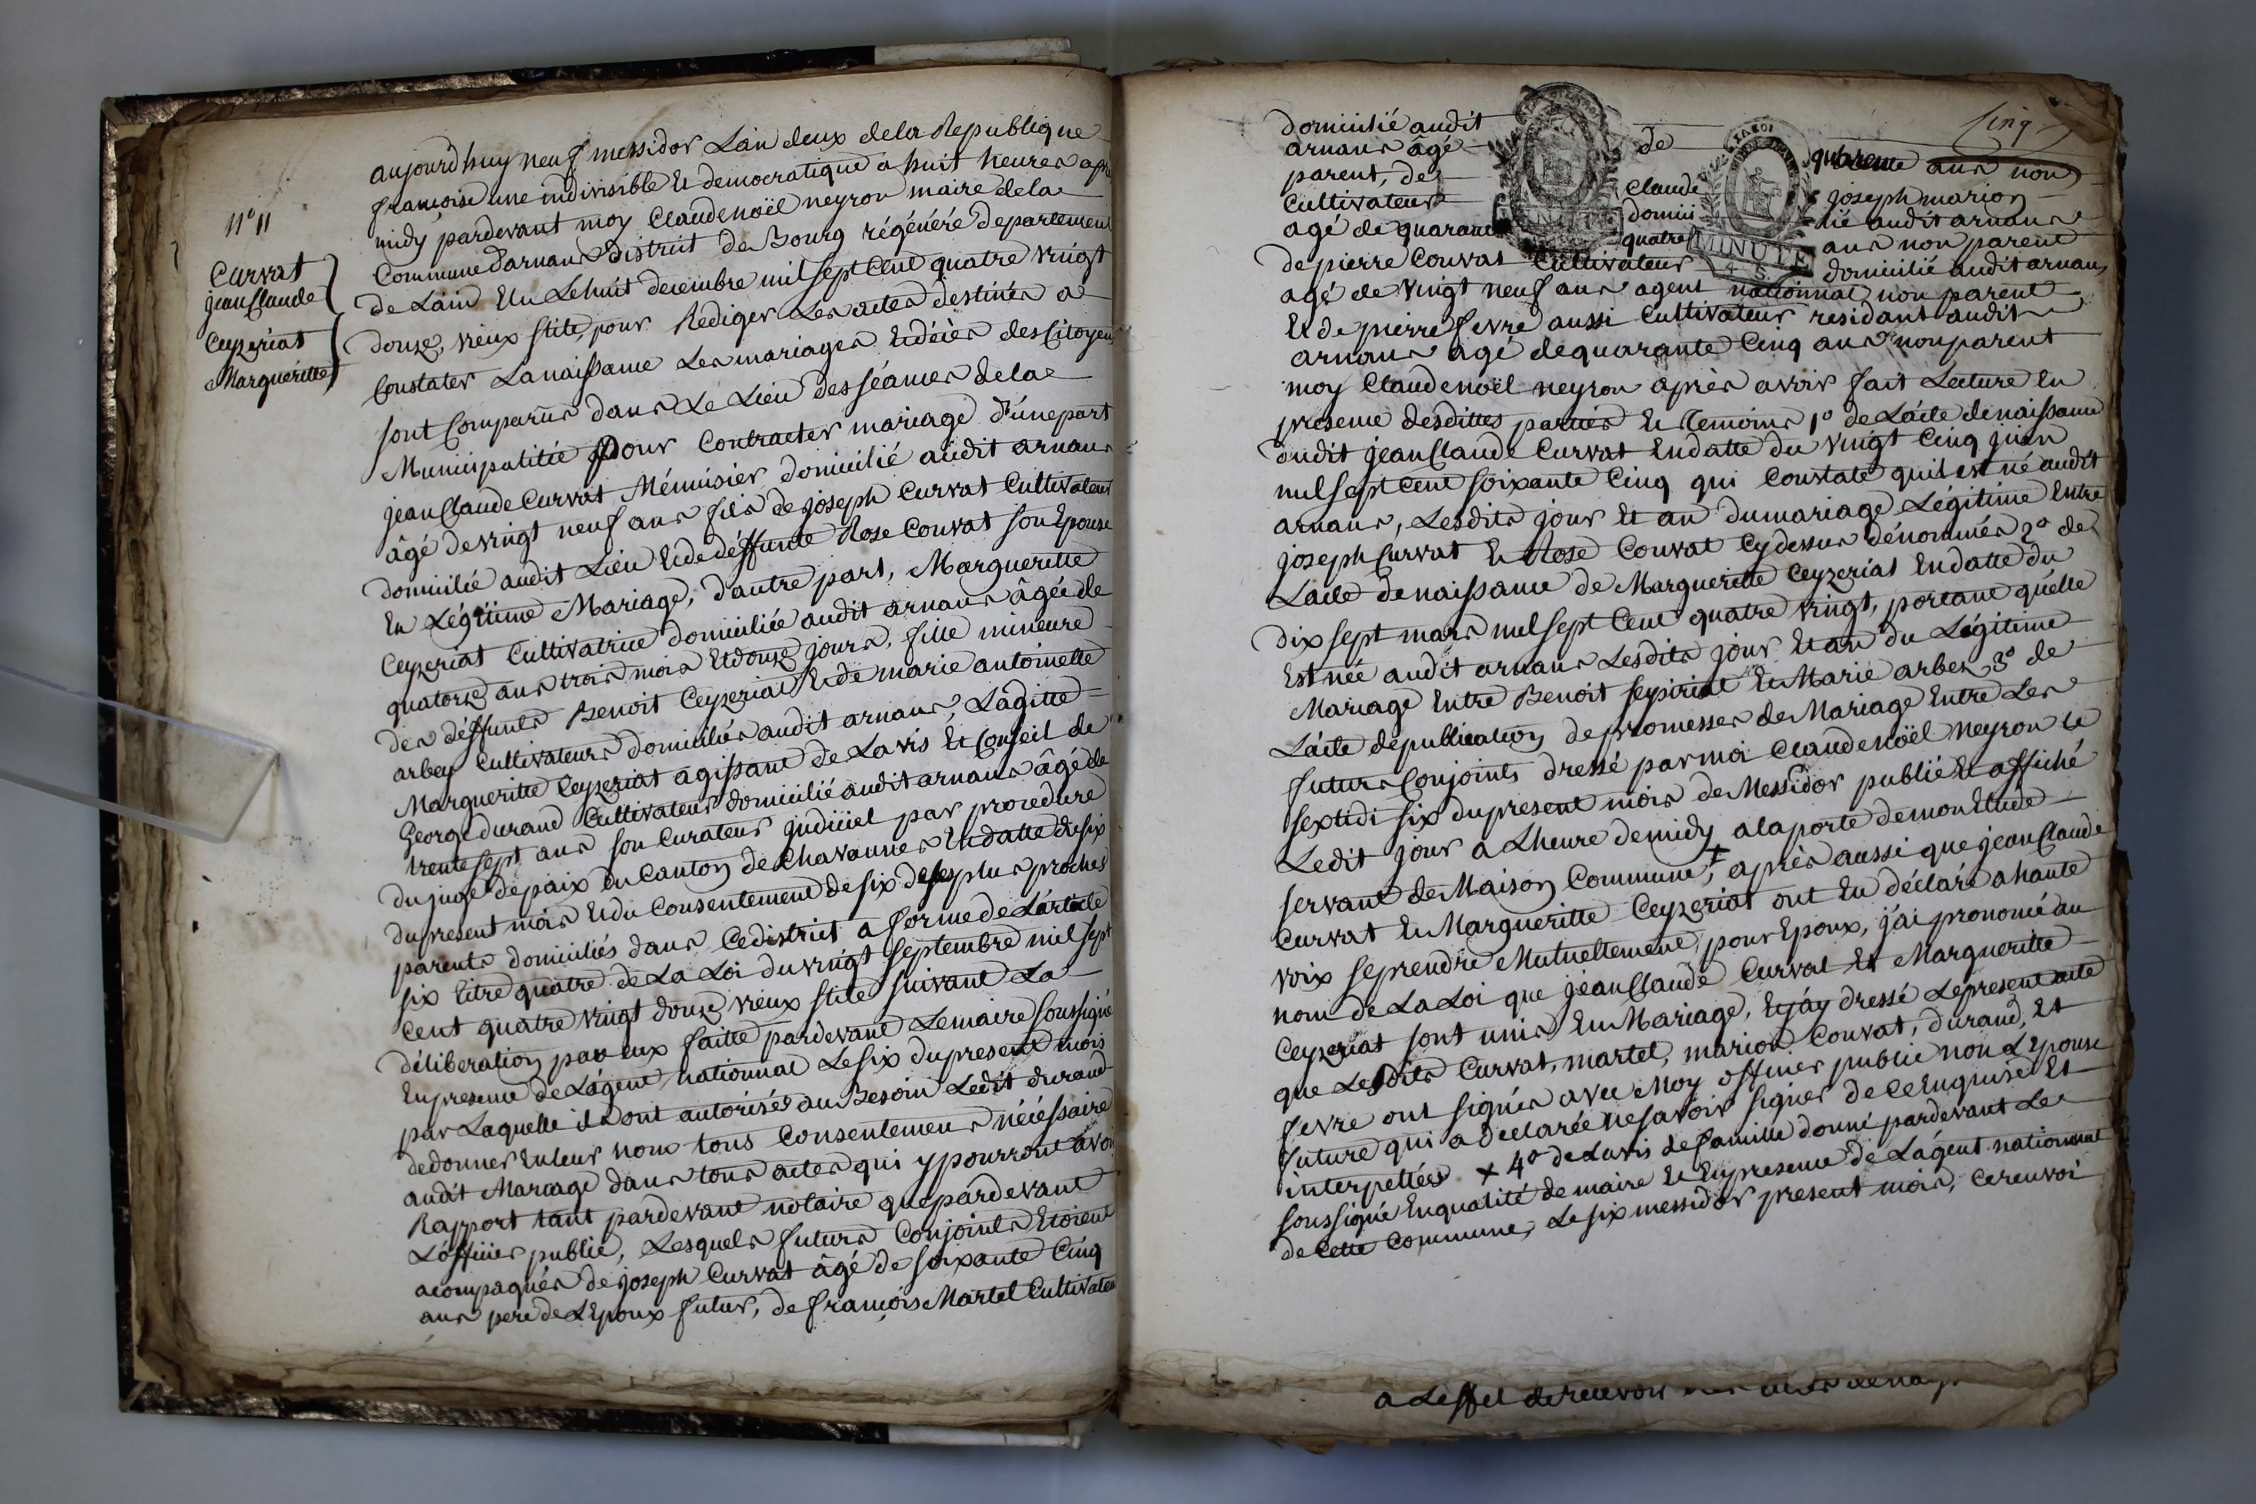 N° 11
Curvat
jean Claude
Ceyzeriat
Margueritte
aujourd'huy neuf messidor Lan deux de la Republique
francoise une indivisible Et democratique a huit heures apre
midy pardevant moy Claude noël neyron maire de la
Commune d'arnans District de Bourg régénéré departement
de L'ain Elu Le huit decembre mil sept Cent quatre vingt
douze, vieux stile, pour Rediger Les actes destinés a
Constater La naissance Les mariages Et décès des Citoyens
sont Comparus dans Le Lieu des séances de la
Municipalitée pour Contracter mariage d'une part
jean Claude Curvat Ménuisier domicilié audit arnans
âgé de vingt neuf ans fils de joseph Curvat Cultivateur
domicilié audit Lieu Et de deffunte Rose Convat son Epouse
En Légitime Mariage, d'autre part, Margueritte
Ceyzeriat Cultivatrice domiciliée audit arnans âgée de
quatorze ans trois mois Et douze jours, fille mineure
des deffunts Benoit Ceyzeriat Et de marie antoinette
arbey Cultivateurs domiciliés audit arnans, Laditte
Margueritte Ceyzeriat agissant de Lavis Et Conseil de
George durand Cultivateur domicilié audit arnans âgé de
trente sept ans son Curateur judiciel par procedure
du juge de paix du Canton de Chavannes En datte du six
du present mois Et du Consentement de six de ses plus proches
parents domiciliés dans Ce district a forme de L'article
six titre quatre de La Loi du vingt septembre mil sept
Cent quatre vingt douze vieux stile suivant La
déliberation par eux faitte pardevant Le maire soussigné
En presence de L'agent nationnal Le six du present mois
par Laquelle ils ont autorisés au Besoin Ledit durand
de donner En leur nom tous Consentemens nécéssaire
audit Mariage dans tous actes qui y pourront avoir
Rapport tant pardevant notaire que pardevant
L'officier public, Lesquels futurs Conjoints Etoient
acompagnés de joseph Curvat âgé de soixante Cinq
ans pere de L'Epoux futur, de francois Martel Cultivateur
Cinq
domicilié audit arnans âgé de quarente ans non
parent, de Claude joseph marion
Cultivateur domicilié audit arnans
agé de quarante quatre ans non parent
de pierre Convat Cultivateur domicilié audit arnans
agé de vingt neuf ans agent nationnal non parent
Et de pierre fevre aussi Cultivateur residant audit
arnans âgé de quarante Cinq ans non parent
moy Claude noël neyron après avoir fait Lecture En
presence desdittes parties Et temoins 1° de L'acte de naissance
dudit jean Claude Curvat En datte du vingt Cinq juin
mil sept Cent soixante Cinq qui Constate qu'il est né audit
arnans, Lesdits jour Et an du mariage Légitime Entre
joseph Curvat Et Rose Convat Cy dessus dénommés 2° de
L'acte de naissance de Margueritte Ceyzeriat En datte du
dix sept mars mil sept Cent quatre vingt, portant qu'elle
Est née audit arnans Lesdits jour Et an du Légitime
Mariage Entre Benoit seyziriat Et Marie arbey 3° de
L'acte de publication de promesses de Mariage Entre Les
futurs Conjoints dressé par moi Claude noël neyron le
sextidi six du present mois de Messidor publié Et affiché
Ledit jour a L'heure de midy a la porte de mon Etude
servant de Maison Commune, ‡ après aussi que jean Claude
Curvat Et Margueritte Ceyzeriat ont Eu déclaré a haute
voix se prendre Mutuellement pour Epoux, j'ai prononcé au
nom de La Loi que jean Claude Curvat Et Margueritte
Ceyzeriat sont unis En Mariage, Et j'ay dressé Le present acte
que Lesdits Curvat, martel, marion Convat, durand, Et
fevre ont signés avec Moy officier public non L'Epouse
future qui a declarée ne savoir signer de ce Enquise Et
interpellée × 4° de Lavis de famille donné pardevant Le
soussigné En qualité de maire Et En presence de L'agent nationnal
de Cette Commune, Le six messidor present mois, ce renvoi
a Leffet de recevoir